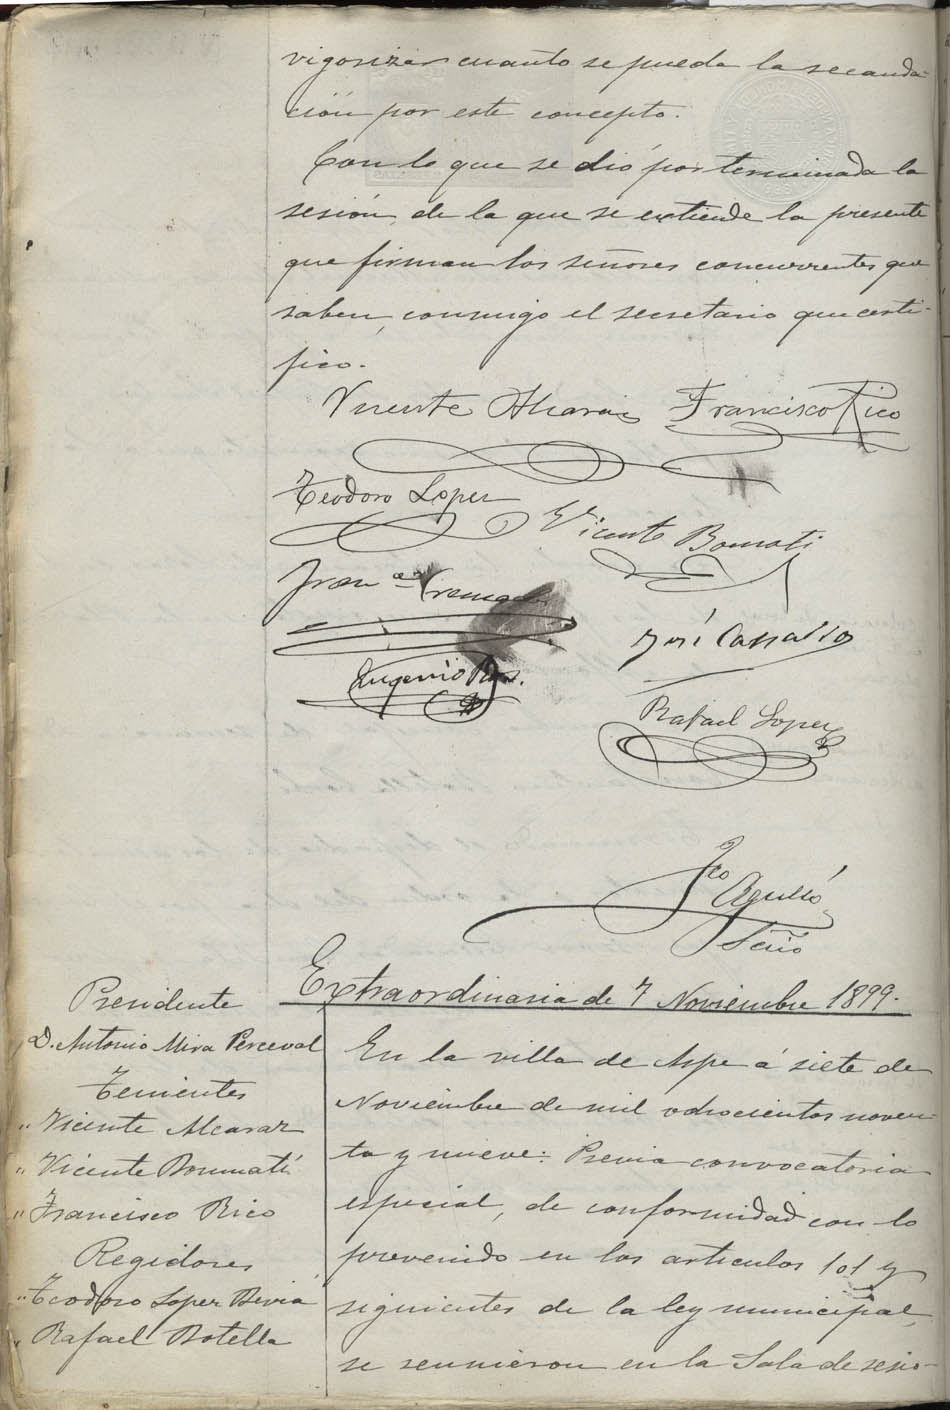 vigorizar cuanto se pueda la recauda-
ción por este concepto.
Con lo que se dió por terminada la
sesión, de la que se extiende la presente
que firman los señores concurrentes que
saben, conmigo el secretario que certi-
fico.
Vicente Alcaraz Francisco Rico
Teodoro Lopez
Vicente Bonmati
Fran.co Cremades
José Carrasco
Eugenio
Rafael Lopez
Fco Agulló
Srio
Extraordinaria de 7 Noviembre 1899.
Presidente
D. Antonio Mira Perceval
Tenientes
" Vicente Alcaraz
" Vicente Bonmatí
" Francisco Rico
Regidores
" Teodoro Lopez Beviá
" Rafael Botella
En la villa de Aspe á siete de
Noviembre de mil ochocientos noven-
ta y nueve: Previa convocatoria
especial, de conformidad con lo
prevenido en los articulos 101 y
siguientes de la ley municipal,
se reunieron en la Sala de sesio-